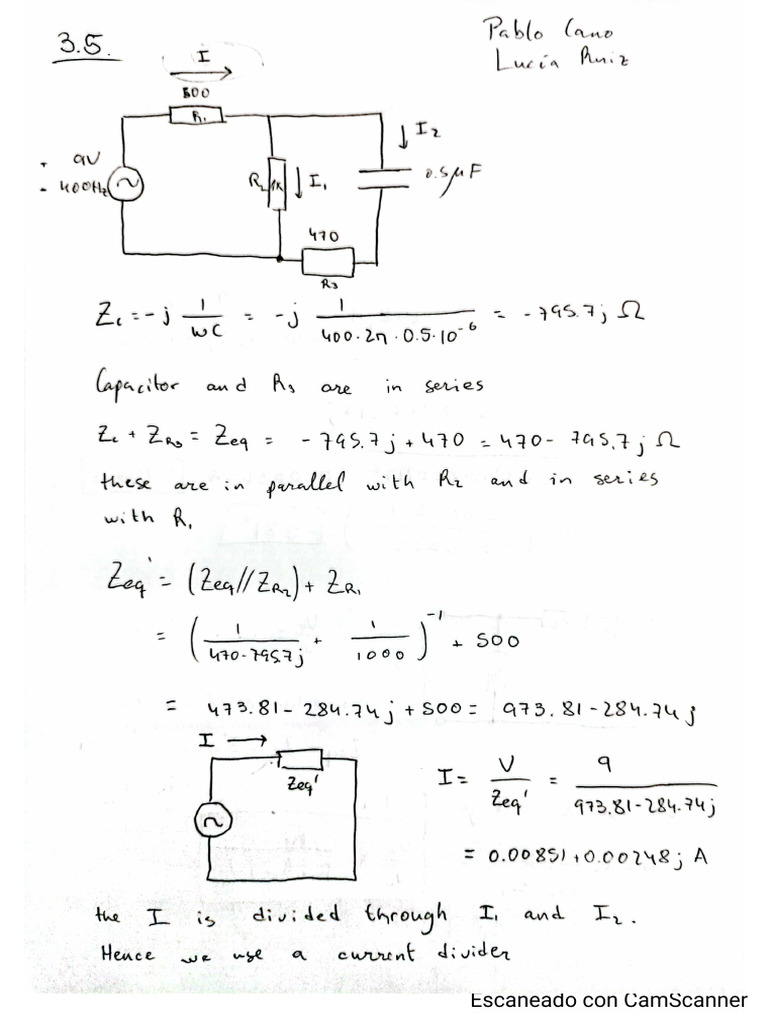 3.5.
Pablo Cano
Lucía Ruiz
I
500
R₁
+ 9V
- 400Hz
R₂ 1K
I₁
I₂
0.5μF
470
R₃
Zc = -j 1/WC = -j 1/400·2π·0.5·10⁻⁶ = -795.7j Ω
Capacitor and R₃ are in series
Zc + ZR₃ = Zeq = -795.7j + 470 = 470 - 795.7j Ω
these are in parallel with R₂ and in series
with R₁
Zeq' = (Zeq // ZR₂) + ZR₁
= (1/470-795.7j + 1/1000)⁻¹ + 500
= 473.81 - 284.74j + 500 = 973.81 - 284.74j
I
Zeq'
I = V/Zeq' = 9/973.81-284.74j
= 0.00851 + 0.00248j A
the I is divided through I₁ and I₂.
Hence we use a current divider
Escaneado con CamScanner